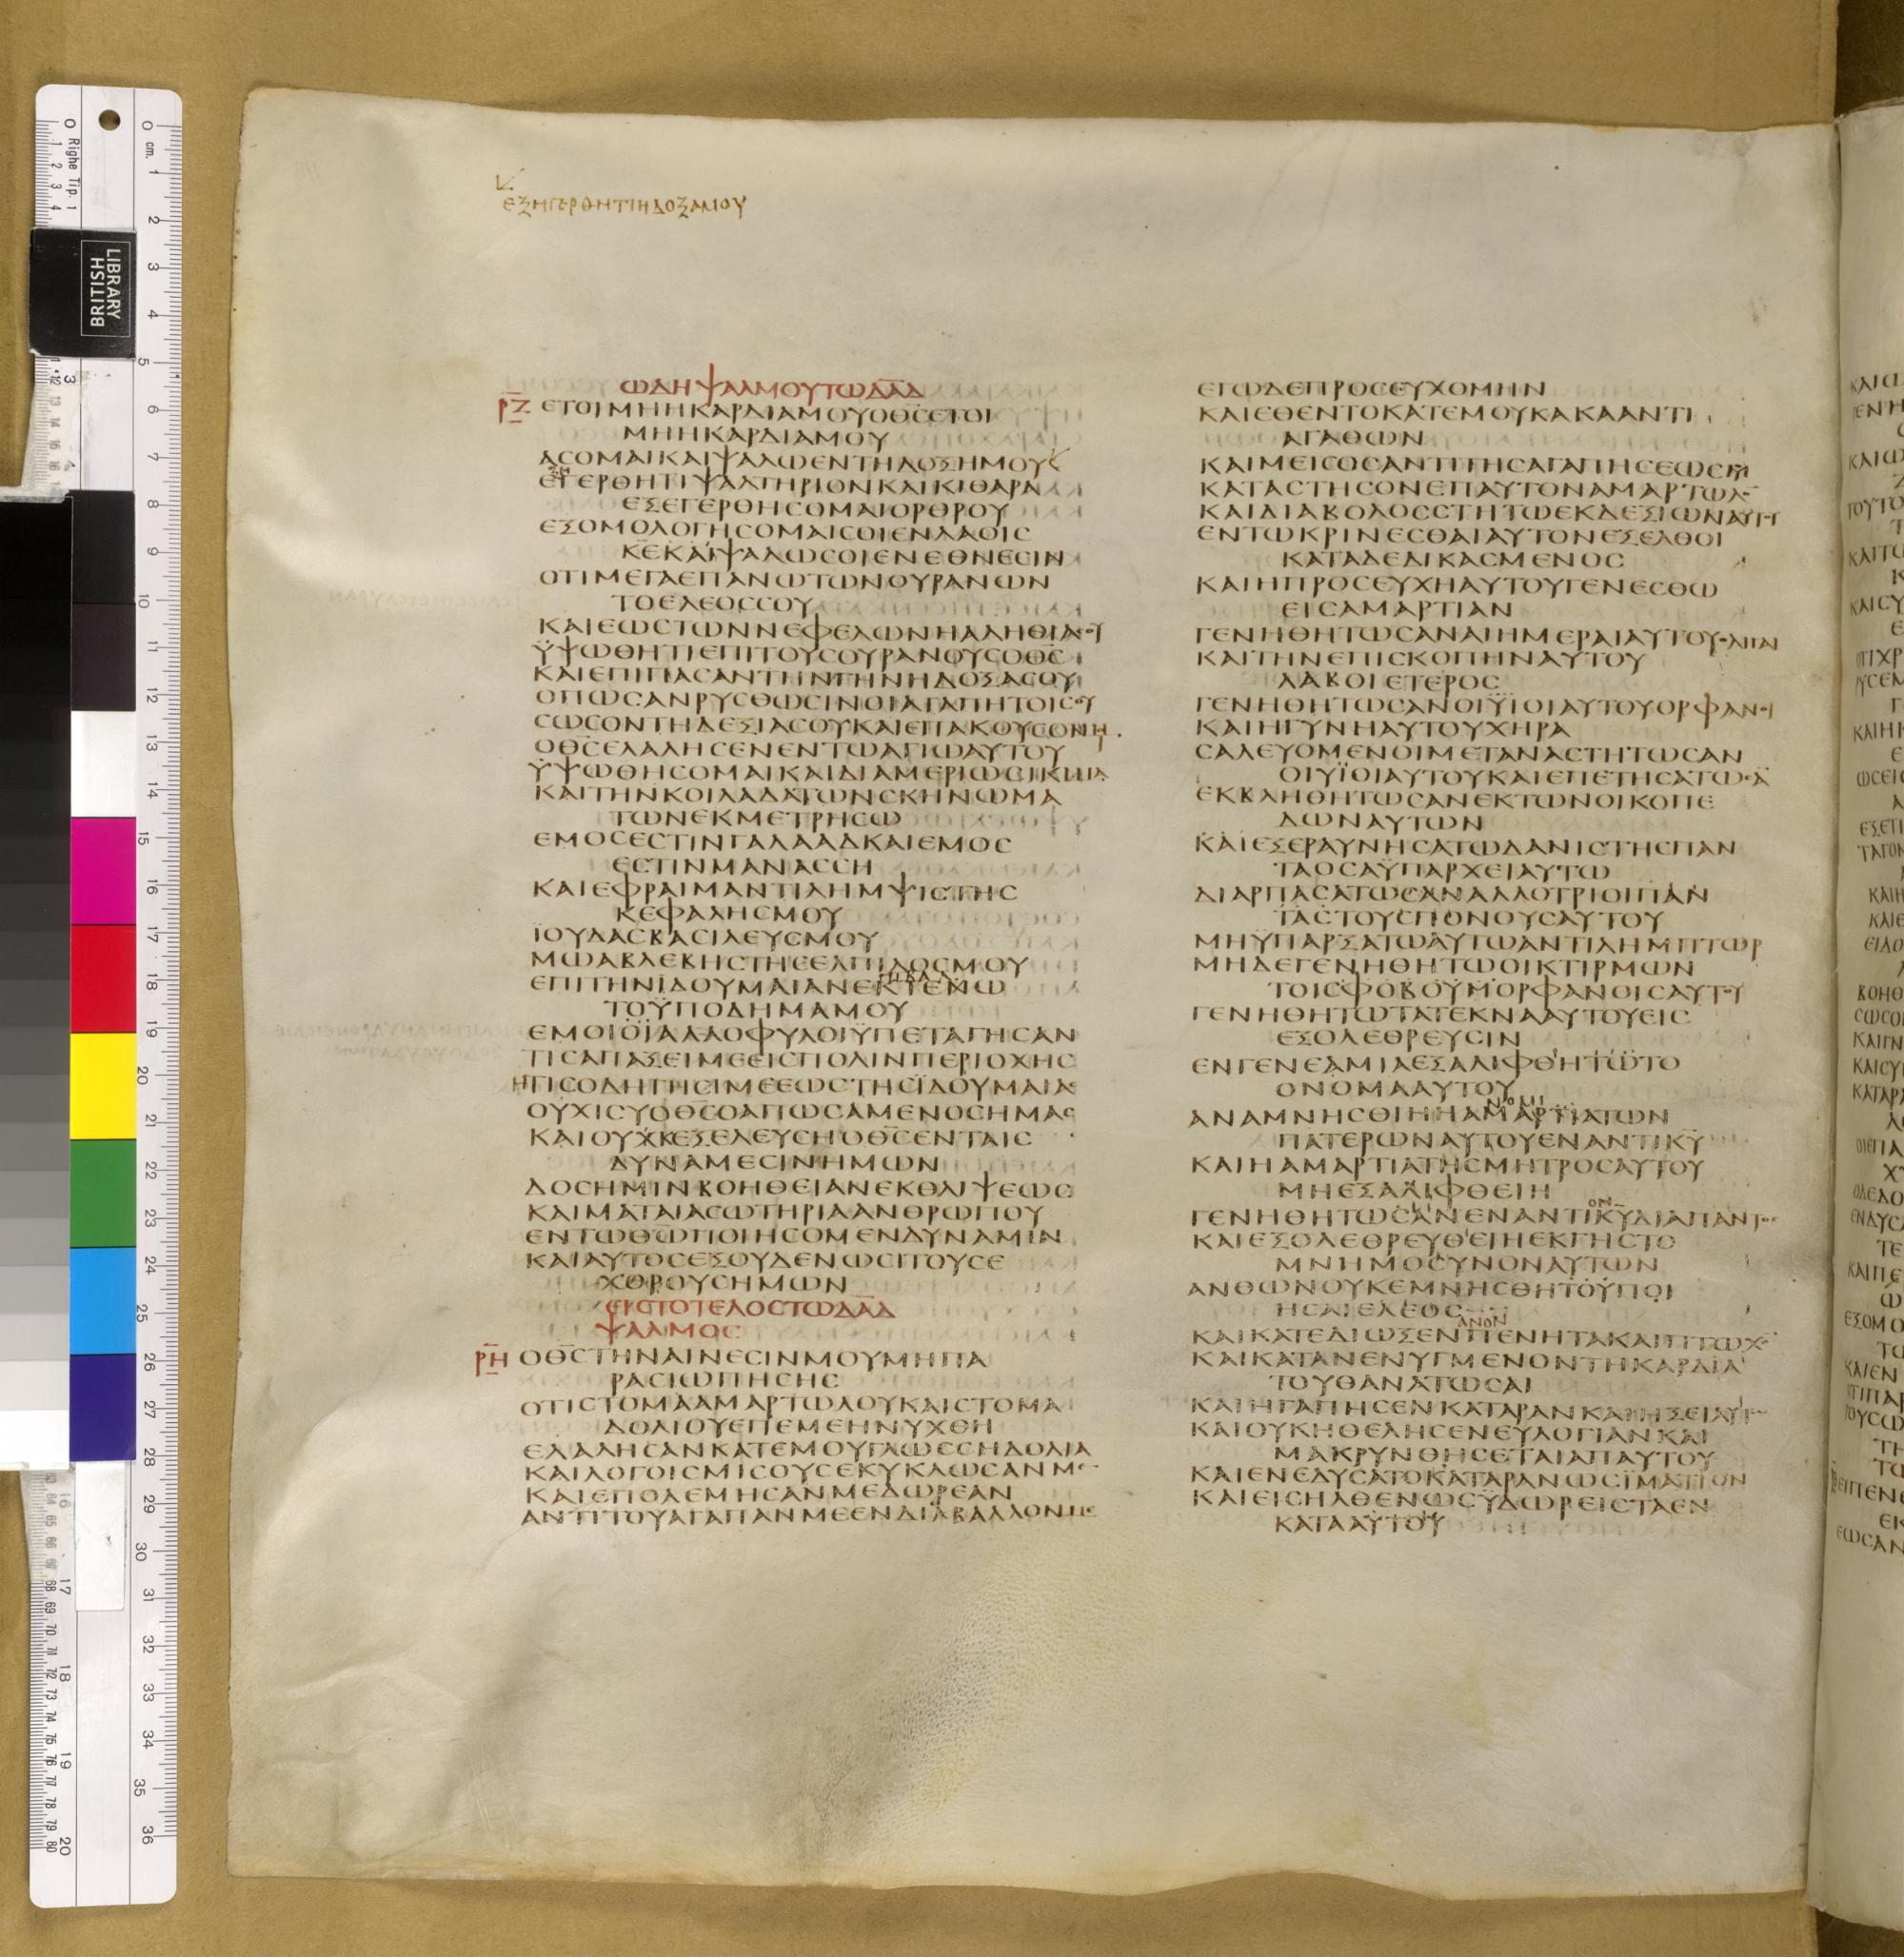 εξηγερθητιηδοξαμου
ωδηψαλμουτωδαδ
ρζ ετοιμηηκαρδιαμουοθσετοι
μηηκαρδιαμου
ασομαικαιψαλωεντηδοξημου
εγερθητιψαλτηριονκαικιθαρα
εξεγερθησομαιορθρου
εξομολογησομαισοιενλαοις
κεκαιψαλωσοιενεθνεσιν
οτιμεγαεπανωτωνουρανων
τοελεοσσου
καιεωστωννεφελωνηαληθιασου
ϋψωθητιεπιτουσουρανουσοθς
καιεπιπασαντηνγηνηδοξασου
οπωσανρυσθωσινοιαγαπητοισου
σωσοντηδεξιασουκαιεπακουσονμου
οθσελαλησενεντωαγιωαυτου
ϋψωθησομαικαιδιαμεριωσικιμα
καιτηνκοιλαδατωνσκηνωμα
τωνεκμετρησω
εμοσεστινγαλααδκαιεμος
εστινμανασση
καιεφραιμαντιλημψιστης
κεφαλησμου
ϊουδασβασιλευσμου
μωαβλεβηστησελπιδοσμου
επιτηνϊδουμαιανεκτενω
τοϋποδημαμου
εμοιοϊαλλοφυλοιϋπεταγησαν
τισαπαξειμεεισπολινπεριοχης
ητισοδηγησιμεεωστησϊδουμαιας
ουχισυοθσοαπωσαμενοσημας
καιουχκεξελευσηοθσενταις
δυναμεσινημων
δοσημινβοηθειανεκθλιψεως
καιματαιασωτηριαανθρωπου
εντωθωποιησομενδυναμιν
καιαυτοσεξουδενωσιτουσε
χθρουσημων
ειστοτελοστωδαδ
ψαλμος
ρη οθστηναινεσινμουμηπα
ρασιωπησης
οτιστομααμαρτωλουκαιστομα
δολιουεπεμεηνυχθη
ελαλησανκατεμουγλωσσηδολια
καιλογοισμισουσεκυκλωσανμε
καιεπολεμησανμεδωρεαν
αντιτουαγαπανμεενδιαβαλλονμε
εγωδεπροσευχομην
καιεθεντοκατεμουκακααντι
αγαθων
καιμεισοσαντιτησαγαπησεωσμου
καταστησονεπαυτοναμαρτωλον
καιδιαβολοσστητωεκδεξιωναυτου
εντωκρινεσθαιαυτονεξελθοι
καταδεδικασμενος
καιηπροσευχηαυτουγενεσθω
εισαμαρτιαν
γενηθητωσαναιημεραιαυτουολιγαι
καιτηνεπισκοπηναυτου
λαβοιετερος
γενηθητωσανοιϋϊοιαυτουορφανοι
καιηγυνηαυτουχηρα
σαλευομενοιμεταναστητωσαν
οιυϊοιαυτουκαιεπετησατωσα
εκβληθητωσανεκτωνοικοπε
δωναυτων
καιεξεραυνησατωδανιστησπαν
ταοσαϋπαρχειαυτω
διαρπασατωσαναλλοτριοιπαν
ταστουσπονουσαυτου
μηϋπαρξατωαυτωαντιλημπτωρ
μηδεγενηθητωοικτιρμων
τοισορφανοισαυτου
γενηθητωτατεκνααυτουεις
εξολεθρευσιν
ενγενεαμιαεξαλιφθητωτο
ονομααυτου
αναμνησθιηηαμαρτιατων
πατερωναυτουεναντικυ
καιηαμαρτιατησμητροσαυτου
μηεξαλιφθειη
γενηθητωσανεναντικυδιαπαντος
καιεξολεθρευθειηεκγηστο
μνημοσυνοναυτων
ανθωνουκεμνησθητουποι
ησαιελεος
ανον
καικατεδιωξενπενητακαιπτωχον
καικατανενυγμενοντηκαρδια
τουθανατωσαι
καιηγαπησενκαταρανκαιηξειαυτω
καιουκηθελησενευλογιανκαι
μακρυνθησεταιαπαυτου
καιενεδυσατοκαταρανωσϊματιον
καιεισηλθενωσϋδωρεισταεν
κατααυτου